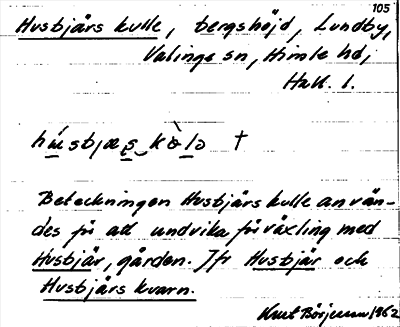 105
Husbjärs kulle, bergshöjd, Lundby,
Valinge sn, Himle hd,
Hall. l.
†
Beteckningen Husbjärs kulle använ-
des för att undvika förväxling med
Husbjär, gården. Jfr Husbjär och
Husbjärs kvarn.
Knut Börjesson 1962